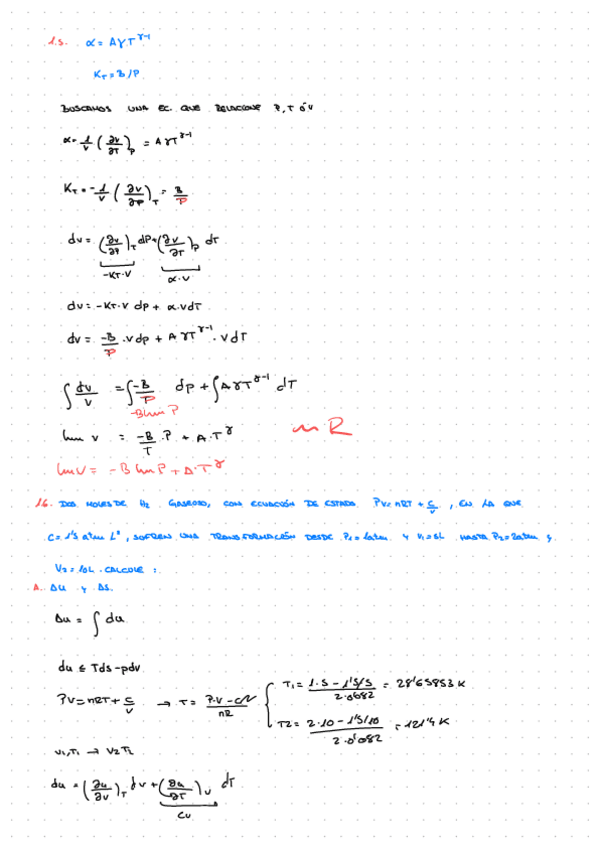 1.5. α = AγT^γ-1
K_T = B/P
BUSCAMOS UNA EC. QUE RELACIONE P, T ó V
α = 1/v (∂v/∂T)_P = AγT^γ-1
K_T = -1/v (∂v/∂P)_T = B/P
dv = (∂v/∂P)_T dP + (∂v/∂T)_P dT
-KT·V α·V
dv = -KT·V dp + α·VdT
dv = -B/P ·Vdp + AγT^γ-1 ·VdT
∫ dv/v = ∫ -B/P dp + ∫ AγT^γ-1 dT
-B ln P
ln v = -B/T ·P + A·T^γ nR
ln V = -B ln P + A·T^γ
16. DOS MOLES DE H2 GASEOSO, CON ECUACIÓN DE ESTADO PV=nRT + C/V, EN LA QUE
C= 1'5 atm L², SUFREN UNA TRANSFORMACIÓN DESDE P1=1atm Y V1=5L HASTA P2=2atm y
V2=10L. CALCULE:
A. ΔU y ΔS.
Δu = ∫ du
du ≤ Tds-pdv
PV=nRT + C/V → T = P·V-C/V / nR { T1 = 1·5 - 1'5/5 / 2·0'082 = 28'65853 K
T2 = 2·10 - 1'5/10 / 2·0'082 = 121'4 K
V1,T1 → V2T2
du = (∂u/∂v)_T dv + (∂u/∂T)_V dT
CV